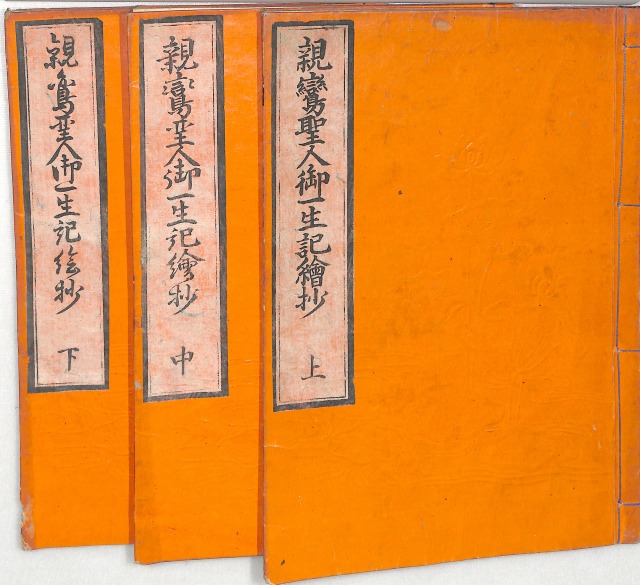 親鸞聖人御一生記繪抄 上
親鸞聖人御一生記繪抄 中
親鸞聖人御一生記絵抄 下